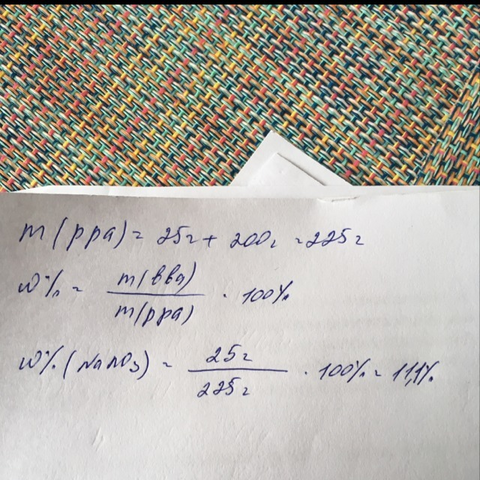 m(рра) = 25г + 200г = 225г
w% = m(вва) / m(рра) · 100%
w%(NaNO₃) = 25г / 225г · 100% = 11,1%